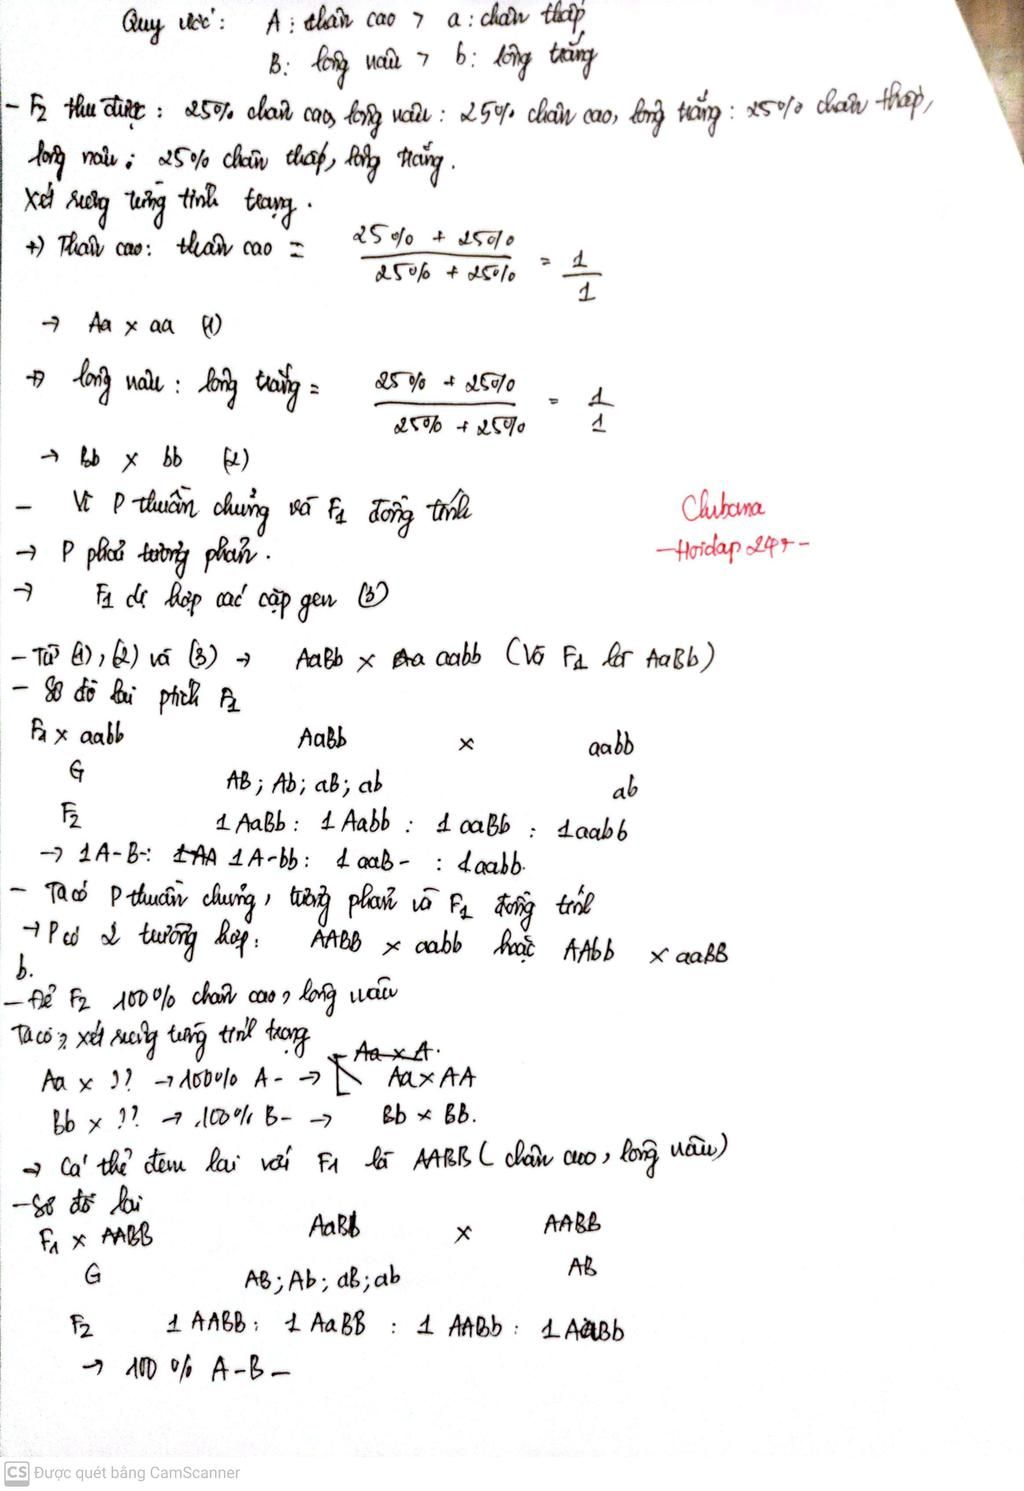 Quy ước: A: thân cao > a: chân thấp
B: lông nâu > b: lông trắng
- F2 thu được: 25% chân cao, lông nâu: 25% chân cao, lông trắng: 25% chân thấp,
lông nâu: 25% chân thấp, lông trắng.
Xét riêng từng tính trạng.
+) Thân cao: thân cao = 25% + 25% / 25% + 25% = 1/1
→ Aa x aa (1)
+) lông nâu: lông trắng = 25% + 25% / 25% + 25% = 1/1
→ Bb x bb (2)
- Vì P thuần chủng và F1 đồng tính
→ P phải tương phản.
→ F1 dị hợp các cặp gen (3)
Clubana
-Hoidap 247-
- Từ (1), (2) và (3) → AaBb x aabb (Và F1 là AaBb)
- Sơ đồ lai phích F1
F1 x aabb AaBb x aabb
G AB; Ab; aB; ab ab
F2 1 AaBb: 1 Aabb : 1 aaBb : 1aabb
→ 1A-B-: 1A-bb: 1 aaB- : 1aabb.
- Ta có P thuần chủng, tương phản và F1 đồng tính
→ P có 2 trường hợp: AABB x aabb hoặc AAbb x aaBB
b.
- Để F2 100% chân cao, lông nâu
Ta có, xét riêng từng tính trạng
Aa x ?? → 100% A- → Aa x AA
Bb x ?? → 100% B- → Bb x BB.
→ Cá thể đem lai với F1 là AABB (chân cao, lông nâu)
- Sơ đồ lai
F1 x AABB AaBb x AABB
G AB; Ab; aB; ab AB
F2 1 AABB: 1 AaBB : 1 AABb: 1 AaBb
→ 100 % A-B-
CS Được quét bằng CamScanner